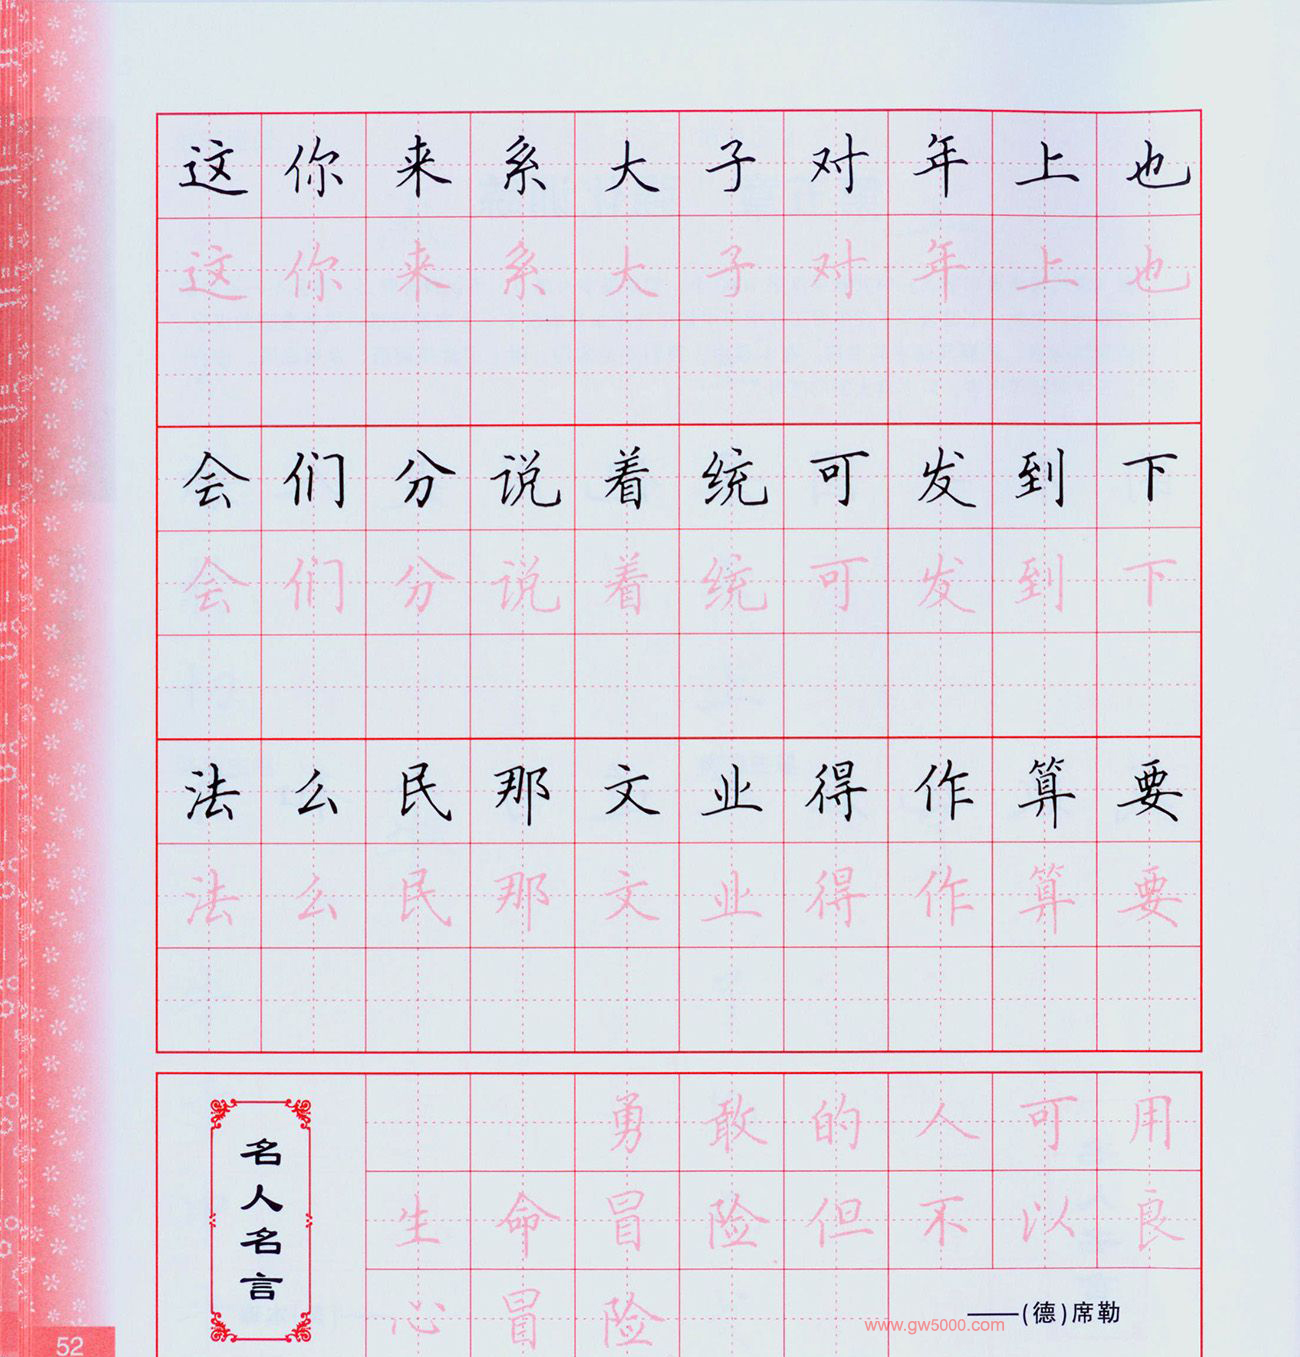 这你来系大子对年上也
这你来系大子对年上也
会们分说着统可发到下
会们分说着统可发到下
法么民那文业得作算要
法么民那文业得作算要
名人名言
勇敢的人可用
生命冒险但不以良
心冒险
——(德)席勒
www.gw5000.com
52